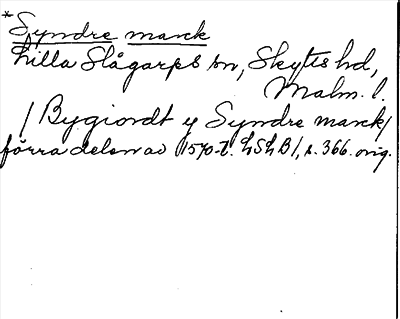 *Syndre marck
Lilla Slågarps sn, Skyts hd,
Malm. l.
/Bygiordt y Syndre marck/
förra delen av 1570-t. LSHB/, s. 366. orig.